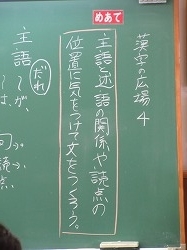 めあて
漢字の広場 4
主語と述語の関係や読点の
位置に気をつけて文をつくろう。
主語
だれ
〜が、
〜は、